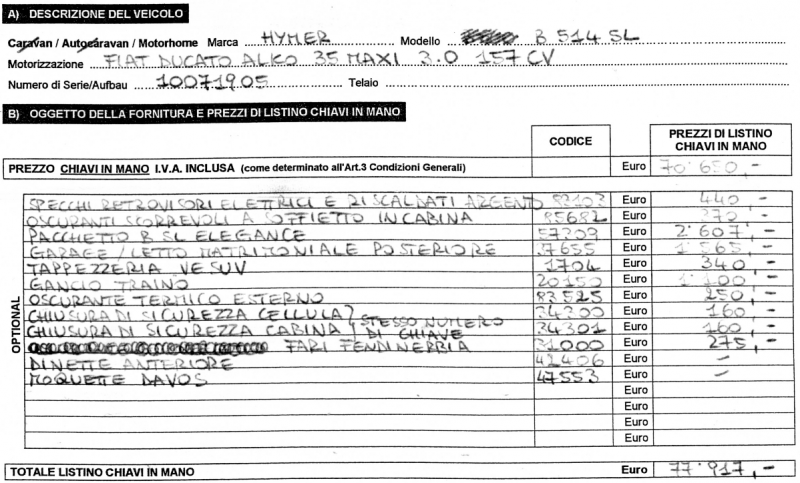 A) DESCRIZIONE DEL VEICOLO
Caravan / Autocaravan / Motorhome Marca HYMER Modello B 514 SL
Motorizzazione FIAT DUCATO ALKO 35 MAXI 3.0 157 CV
Numero di Serie/Aufbau 10071905 Telaio
B) OGGETTO DELLA FORNITURA E PREZZI DI LISTINO CHIAVI IN MANO
CODICE PREZZI DI LISTINO CHIAVI IN MANO
PREZZO CHIAVI IN MANO I.V.A. INCLUSA (come determinato all'Art.3 Condizioni Generali) Euro 70'650,-
OPTIONAL
SPECCHI RETROVISORI ELETTRICI E RISCALDATI ARGENTO Euro 440,-
OSCURANTI SCORREVOLI A SOFFIETTO IN CABINA 85682 Euro 370,-
PACCHETTO B SL ELEGANCE 57309 Euro 2'607,-
GARAGE / LETTO MATRIMONIALE POSTERIORE 37655 Euro 1'565,-
TAPPEZZERIA VESUV 1704 Euro 340,-
GANCIO TRAINO 20150 Euro 1'100,-
OSCURANTE TERMICO ESTERNO 83525 Euro 250,-
CHIUSURA DI SICUREZZA CELLULA 34300 Euro 160,-
CHIUSURA DI SICUREZZA CABINA STESSO NUMERO DI CHIAVE 34301 Euro 160,-
FARI FENDINEBBIA 31000 Euro 275,-
DINETTE ANTERIORE 42406 Euro -
MOQUETTE DAVOS 47553 Euro -
Euro
Euro
Euro
Euro
TOTALE LISTINO CHIAVI IN MANO Euro 77'917,-